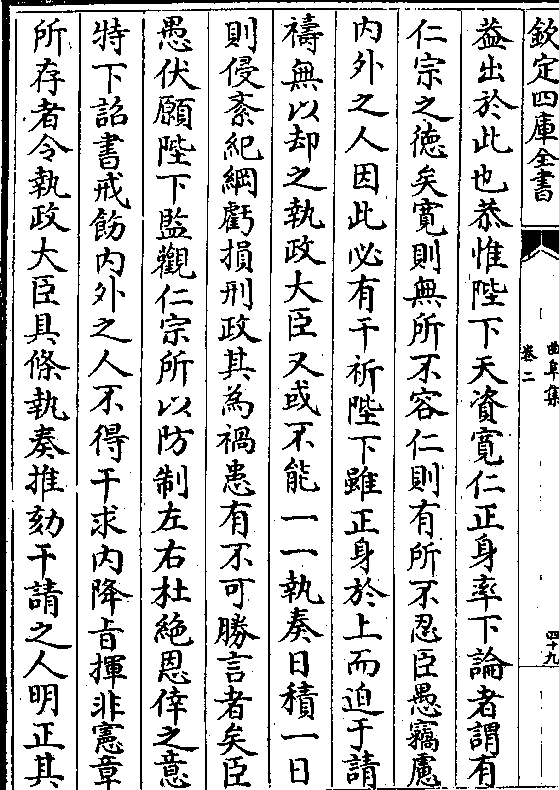 欽定四庫全書
曲阜集
卷二
四十九
葢出於此也恭惟陛下天資寛仁正身率下論者謂有
仁宗之徳矣寛則無所不容仁則有所不忍臣愚竊慮
内外之人因此必有干祈陛下雖正身於上而迫于請
禱無以却之執政大臣又或不能一一執奏日積一日
則侵紊紀綱虧損刑政其為禍患有不可勝言者矣臣
愚伏願陛下監觀仁宗所以防制左右杜絶恩倖之意
特下詔書戒飭内外之人不得干求内降旨揮非憲章
所存者令執政大臣具條執奏推劾干請之人明正其